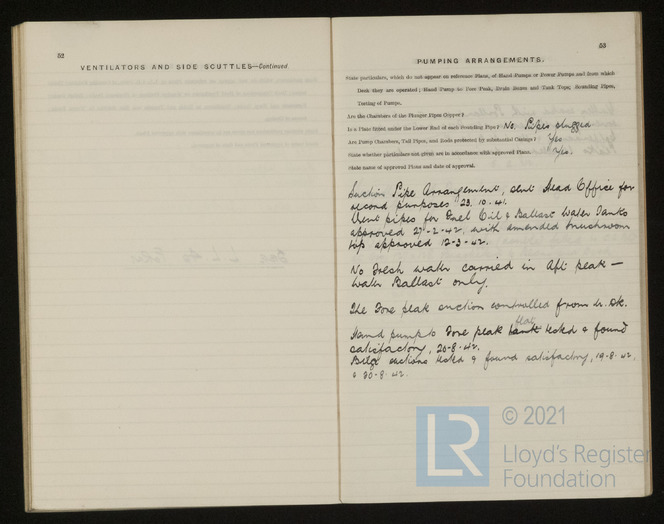 52
VENTILATORS AND SIDE SCUTTLES—Continued.
53
PUMPING ARRANGEMENTS.
State particulars, which do not appear on reference Plans, of Hand Pumps or Power Pumps and from which
Deck they are operated; Hand Pump to Fore Peak, Drain Boxes and Tank Tops, Sounding Pipes,
Testing of Pumps.
Are the Chambers of the Plunger Pipes Copper?
Is a Plate fitted under the Lower End of each Sounding Pipe? No. Pipes plugged
Are Pump Chambers, Tail Pipes, and Rods protected by substantial Casings? Yes
State whether particulars not given are in accordance with approved Plans. Yes.
State name of approved Plans and date of approval.
Suction Pipe Arrangement, sent Head Office for
record purposes 23.10.41.
Vent pipes for Fuel Oil & Ballast Water Tanks
approved 27-2-42, with amended mushroom
top approved 12-3-42.
No Fresh water carried in Aft peak —
Water Ballast only.
The Fore peak suction controlled from U. Dk.
flat
Hand pump to Fore peak tank tested & found
satisfactory, 20-8-42.
Bilge suctions tested & found satisfactory, 19-8-42,
& 20-8-42.
LR
© 2021
Lloyd's Register
Foundation